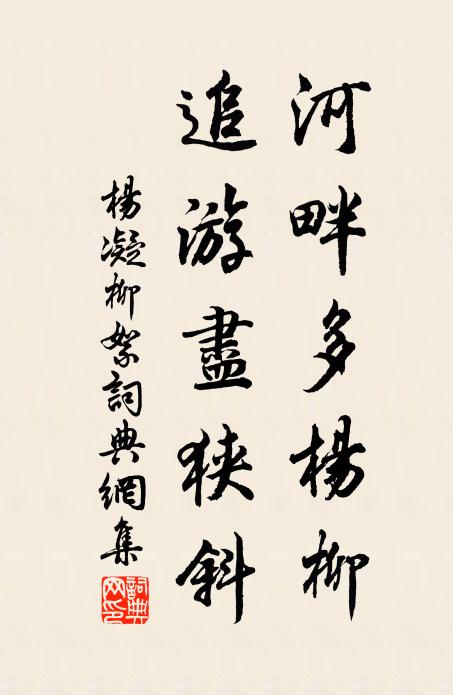 河畔多楊柳
追游盡狹斜
楊凝柳絮詞典網集
詞典網印